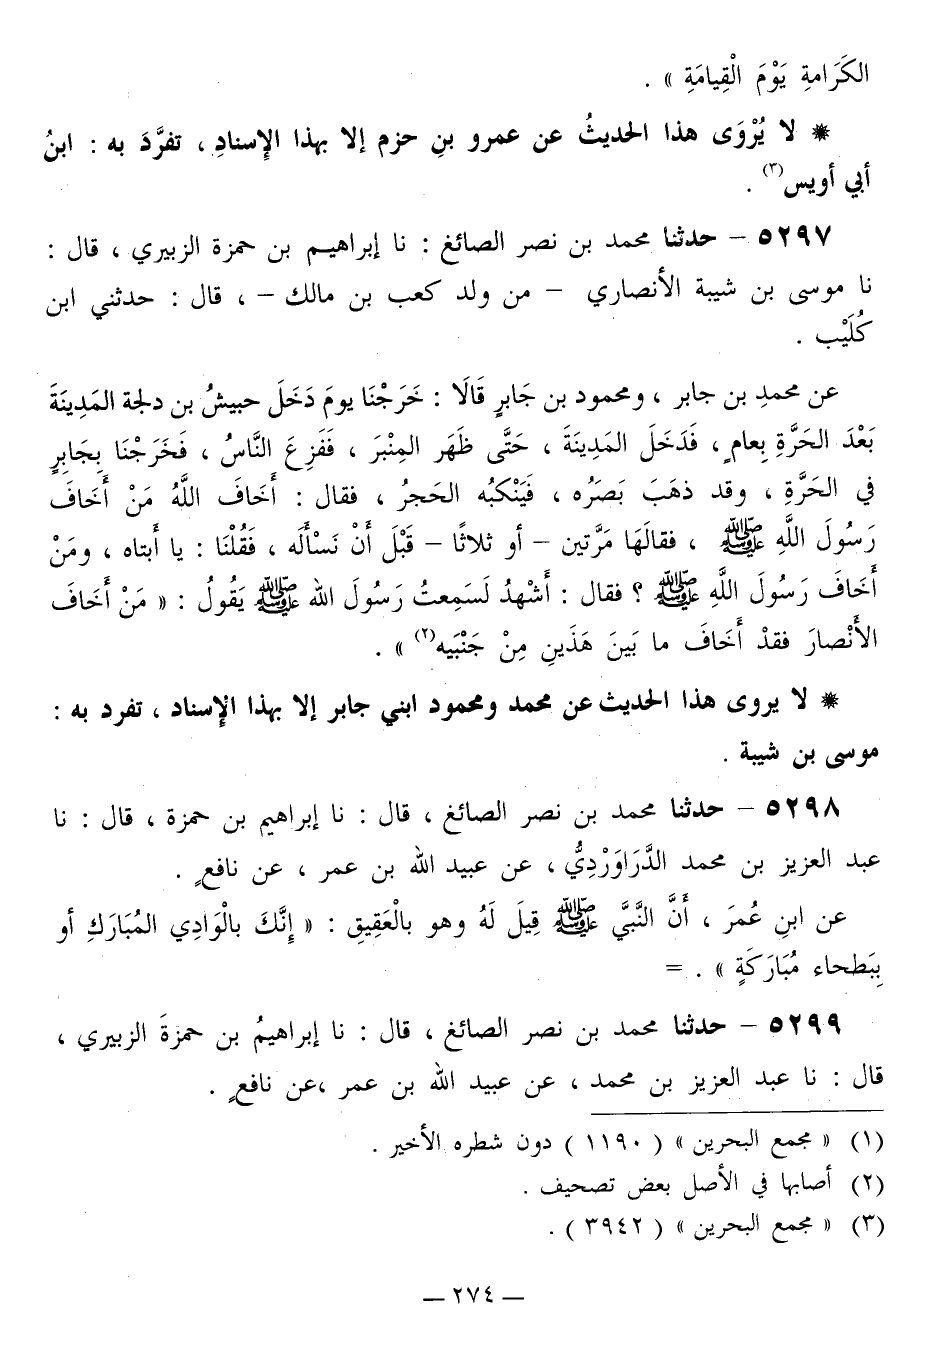 الكَرَامةِ يَوْمَ الْقِيامَةِ » .
* لا يُرْوَى هذا الحديثُ عن عمرو بنِ حزم إلا بهذا الإِسنادِ ، تفرَّدَ به : ابنُ
أبي أويس(٣) .
٥٢٩٧ – حدثنا محمد بن نصر الصائغ : نا إبراهيم بن حمزة الزبيري ، قال :
نا موسى بن شيبة الأنصاري – من ولد كعب بن مالك – ، قال : حدثني ابن
كُلَيْب .
عن محمدِ بن جابر ، ومحمود بن جَابرٍ قَالَا : خَرَجْنَا يومَ دَخَلَ حبيشُ بن دلجة المَدِينَةَ
بَعْدَ الحَرَّةِ بِعامٍ ، فَدَخَلَ المَدِينَةَ ، حَتَّى ظَهَر المِنْبَرَ ، فَفَزِعَ النَّاسُ ، فَخَرَجْنَا بِجَابرٍ
في الحَرَّةِ ، وقد ذهَبَ بَصَرُه ، فَيَنْكبُه الحَجرُ ، فقال : أَخَافَ اللَّهُ مَنْ أَخَافَ
رَسُولَ اللَّهِ ﷺ ، فقالَهَا مَرَّتين – أو ثلاثًا – قَبْلَ أَنْ نَسْأَلَه ، فَقُلْنَا : يا أَبتاه ، ومَنْ
أَخَافَ رَسُولَ اللَّهِ ﷺ ؟ فقال : أَشْهدُ لَسَمِعتُ رَسُولَ الله ﷺ يَقُولُ : « مَنْ أَخَافَ
الأَنْصارَ فقدْ أَخَافَ ما بَينَ هَذَينِ مِنْ جَنْبَيه(٢) » .
* لا يروى هذا الحديث عن محمد ومحمود ابني جابر إلا بهذا الإسناد ، تفرد به :
موسى بن شيبة .
٥٢٩٨ – حدثنا محمد بن نصر الصائغ ، قال : نا إبراهيم بن حمزة ، قال : نا
عبد العزيز بن محمد الدَّرَاوَرْدِيُّ ، عن عبيد الله بن عمر ، عن نافعٍ .
عن ابنِ عُمرَ ، أَنَّ النَّبيَّ ﷺ قِيلَ لَهُ وهو بالْعَقِيقِ : « إِنَّكَ بالْوَادِي المُبَارَكِ أو
بِبَطحاء مُبَارَكَةٍ » . =
٥٢٩٩ – حدثنا محمد بن نصر الصائغ ، قال : نا إبراهيمُ بن حمزةَ الزبيري ،
قال : نا عبد العزيز بن محمد ، عن عبيد الله بن عمر ،عن نافعٍ .
(١) « مجمع البحرين » ( ١١٩٠ ) دون شطره الأخير .
(٢) أصابها في الأصل بعض تصحيف .
(٣) « مجمع البحرين » ( ٣٩٤٢ ) .
— ٢٧٤ —